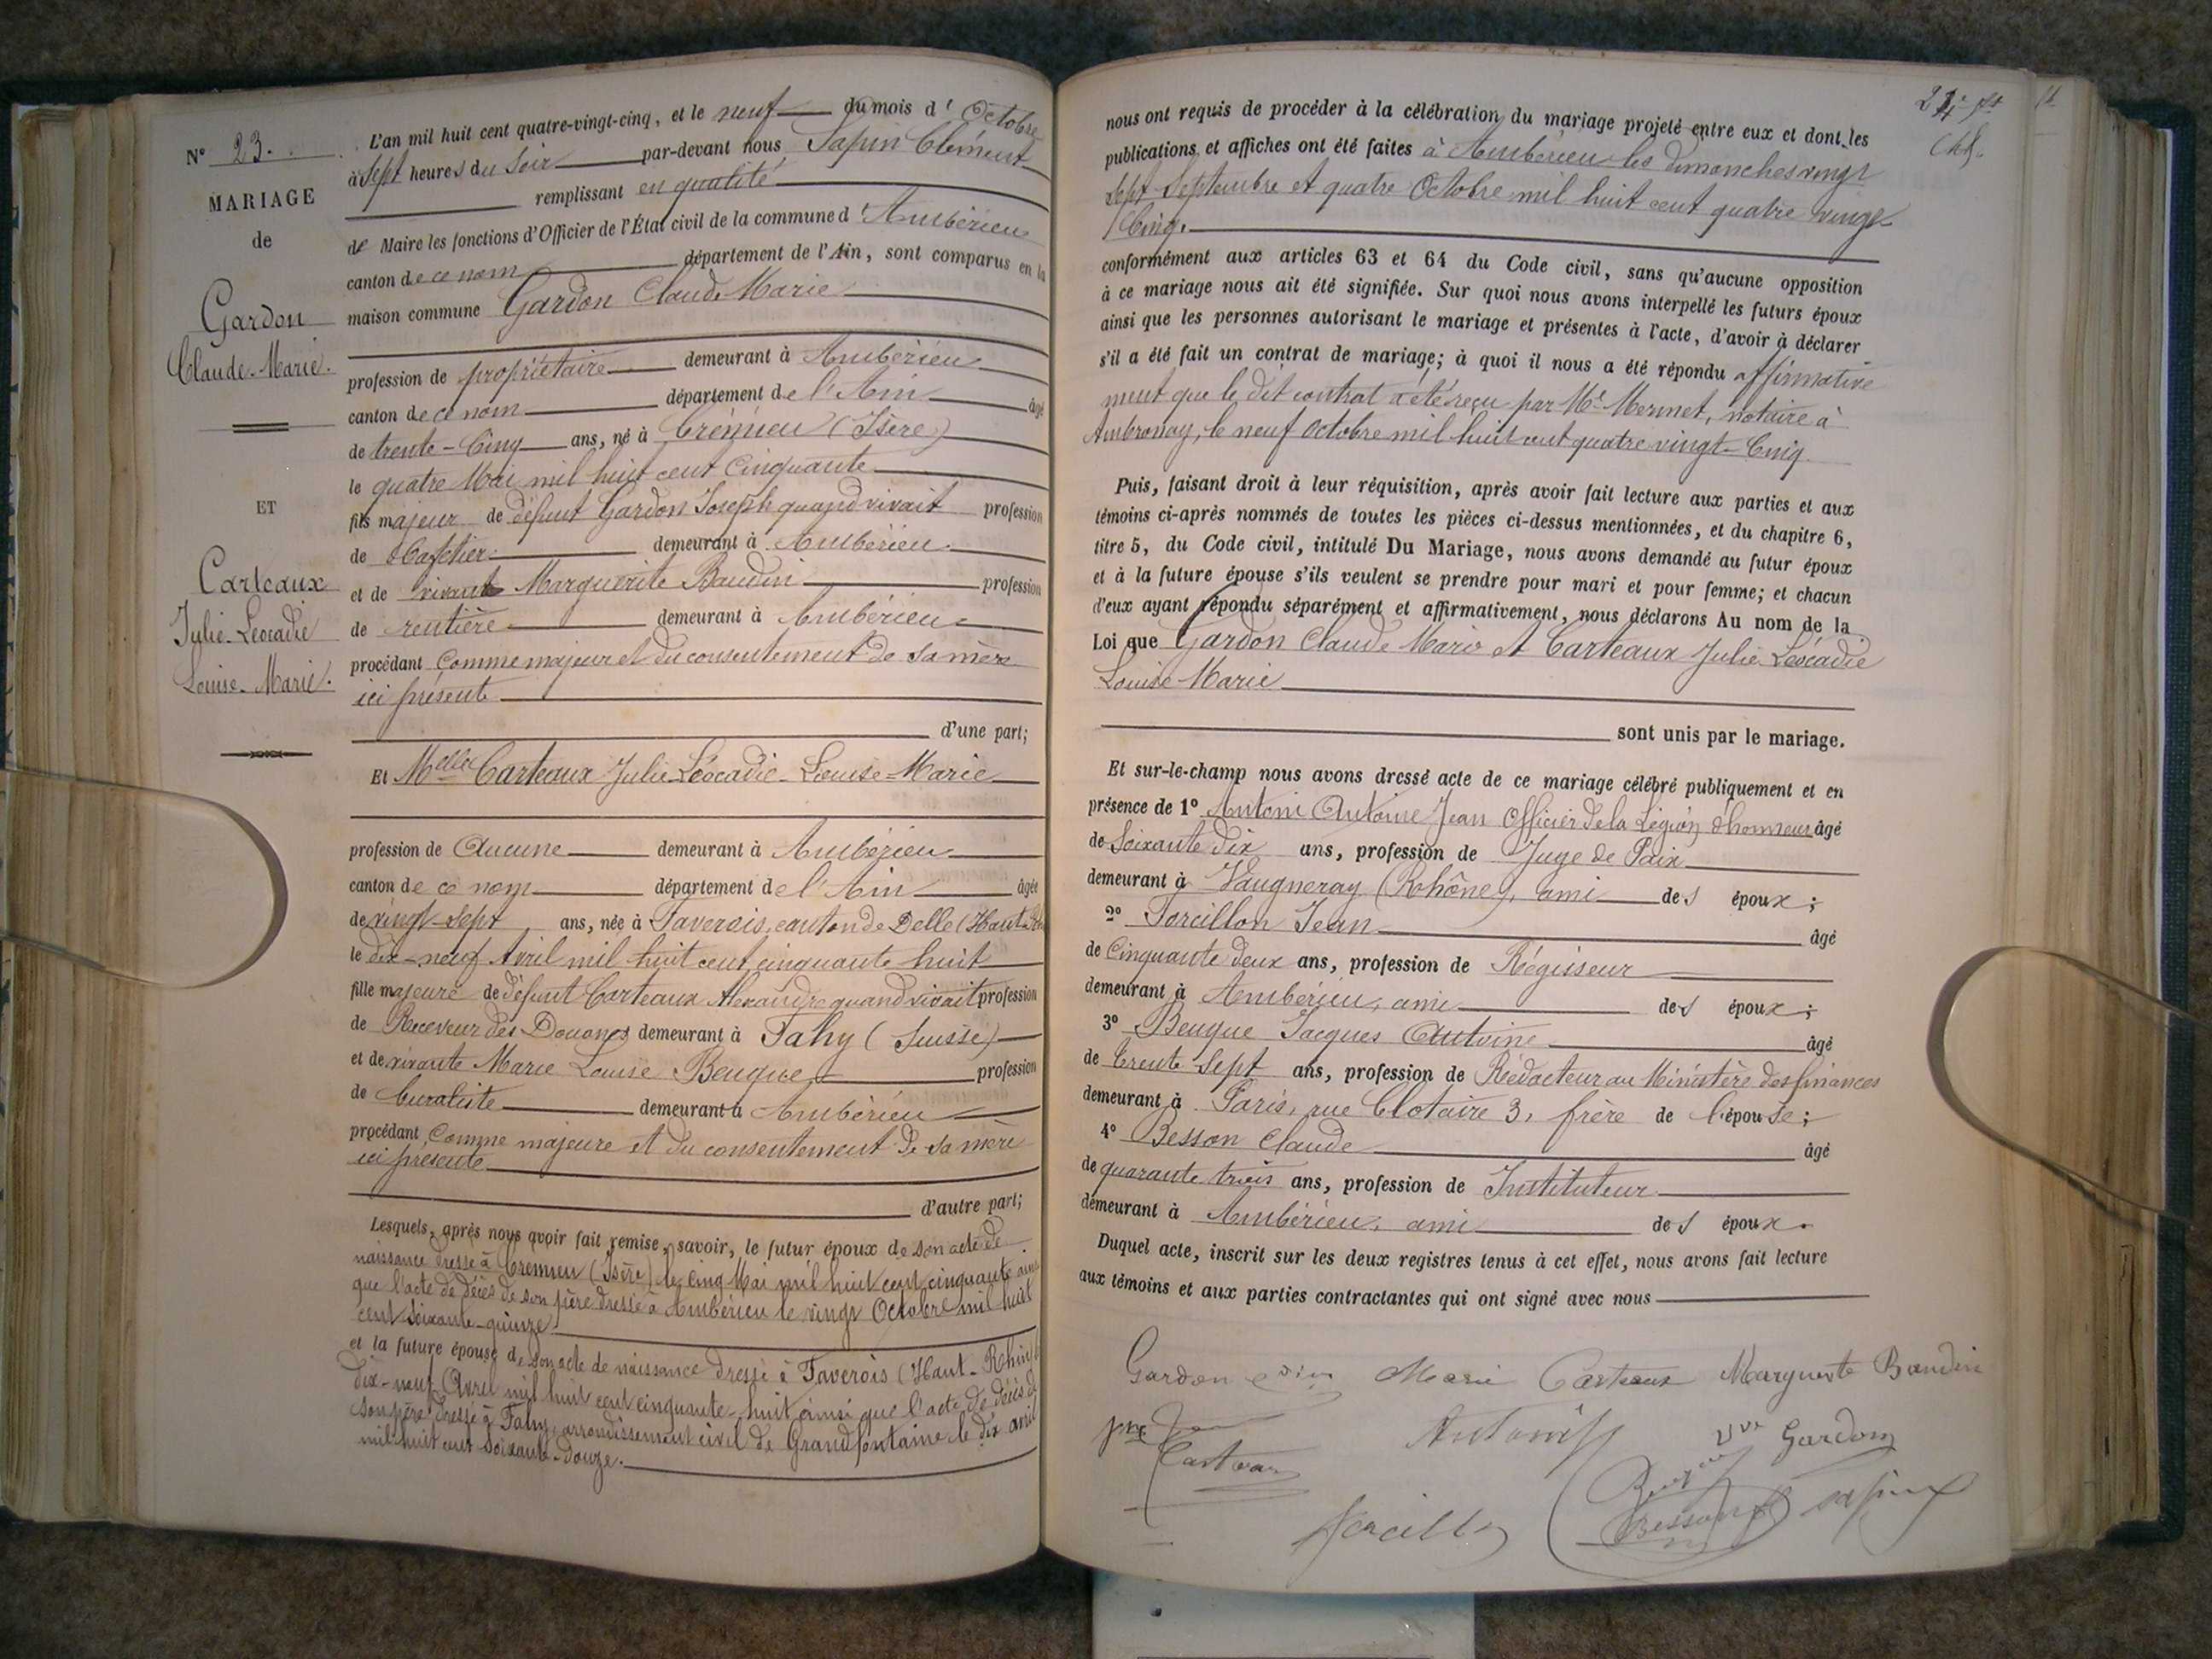 N° 23.
MARIAGE
de
Gardon
Claude-Marie.
ET
Carteaux
Julie-Léocadie
Louise-Marie.
L'an mil huit cent quatre-vingt-cinq, et le neuf du mois d'Octobre
à Sept heures du Soir par-devant nous Sapin Clément
remplissant en qualité
de Maire les fonctions d'Officier de l'État civil de la commune d'Ambérieu
canton de ce nom département de l'Ain, sont comparus en la
maison commune Gardon Claude Marie
profession de propriétaire demeurant à Ambérieu
canton de ce nom département de l'Ain âgé
de trente-Cinq ans, né à Crémieu (Isère)
le quatre Mai mil huit cent Cinquante
fils majeur de défunt Gardon Joseph quand vivait profession
de Cafetier demeurant à Ambérieu
et de vivante Marguerite Baudin profession
de rentière demeurant à Ambérieu
procédant comme majeur et du consentement de sa mère
ici présente
d'une part;
Et Melle Carteaux Julie-Léocadie-Louise-Marie
profession de Aucune demeurant à Ambérieu
canton de ce nom département de l'Ain âgée
de vingt-sept ans, née à Faverois, canton de Delle (Haut-Rhin
le dix-neuf Avril mil huit cent cinquante huit
fille majeure de défunt Carteaux Alexandre quand vivait profession
de Receveur des Douanes demeurant à Fahy (Suisse)
et de vivante Marie Louise Beuque profession
de buraliste demeurant à Ambérieu
procédant comme majeure et du consentement de sa mère
ici présente
d'autre part;
Lesquels, après nous avoir fait remise, savoir, le futur époux de son acte de
naissance dressé à Crémieu (Isère) le cinq Mai mil huit cent cinquante ainsi
que l'acte de décès de son père dressé à Ambérieu le vingt Octobre mil huit
cent soixante-quinze.
et la future épouse de son acte de naissance dressé à Faverois (Haut-Rhin) le
dix-neuf Avril mil huit cent cinquante-huit ainsi que l'acte de décès de
son père dressé à Fahy, arrondissement civil de Grandfontaine le dix avril
mil huit cent soixante-douze.
nous ont requis de procéder à la célébration du mariage projeté entre eux et dont les
publications et affiches ont été faites à Ambérieu les dimanches vingt
sept Septembre et quatre Octobre mil huit cent quatre vingt
Cinq.
conformément aux articles 63 et 64 du Code civil, sans qu'aucune opposition
à ce mariage nous ait été signifiée. Sur quoi nous avons interpellé les futurs époux
ainsi que les personnes autorisant le mariage et présentes à l'acte, d'avoir à déclarer
s'il a été fait un contrat de mariage; à quoi il nous a été répondu affirmative
ment que le dit contrat a été reçu par Me Mermet, notaire à
Ambronay, le neuf Octobre mil huit cent quatre vingt-Cinq.
Puis, faisant droit à leur réquisition, après avoir fait lecture aux parties et aux
témoins ci-après nommés de toutes les pièces ci-dessus mentionnées, et du chapitre 6,
titre 5, du Code civil, intitulé Du Mariage, nous avons demandé au futur époux
et à la future épouse s'ils veulent se prendre pour mari et pour femme; et chacun
d'eux ayant répondu séparément et affirmativement, nous déclarons Au nom de la
Loi que Gardon Claude Marie et Carteaux Julie Léocadie
Louise-Marie
sont unis par le mariage.
Et sur-le-champ nous avons dressé acte de ce mariage célébré publiquement et en
présence de 1° Antoni Antoine Jean Officier de la Légion d'honneur âgé
de Soixante dix ans, profession de Juge de Paix
demeurant à Vaugneray (Rhône), ami des époux;
2° Forcillon Jean âgé
de Cinquante deux ans, profession de Régisseur
demeurant à Ambérieu, ami des époux;
3° Beuque Jacques Antoine âgé
de trente sept ans, profession de Rédacteur au Ministère des finances
demeurant à Paris, rue Clotaire 3, frère de l'épouse;
4° Besson Claude âgé
de quarante trois ans, profession de Instituteur
demeurant à Ambérieu, ami des époux.
Duquel acte, inscrit sur les deux registres tenus à cet effet, nous avons fait lecture
aux témoins et aux parties contractantes qui ont signé avec nous
Gardon Marie Carteaux Marguerite Baudin
Antoni Vve Gardon
Carteaux Beuque
Forcillon Besson Sapin